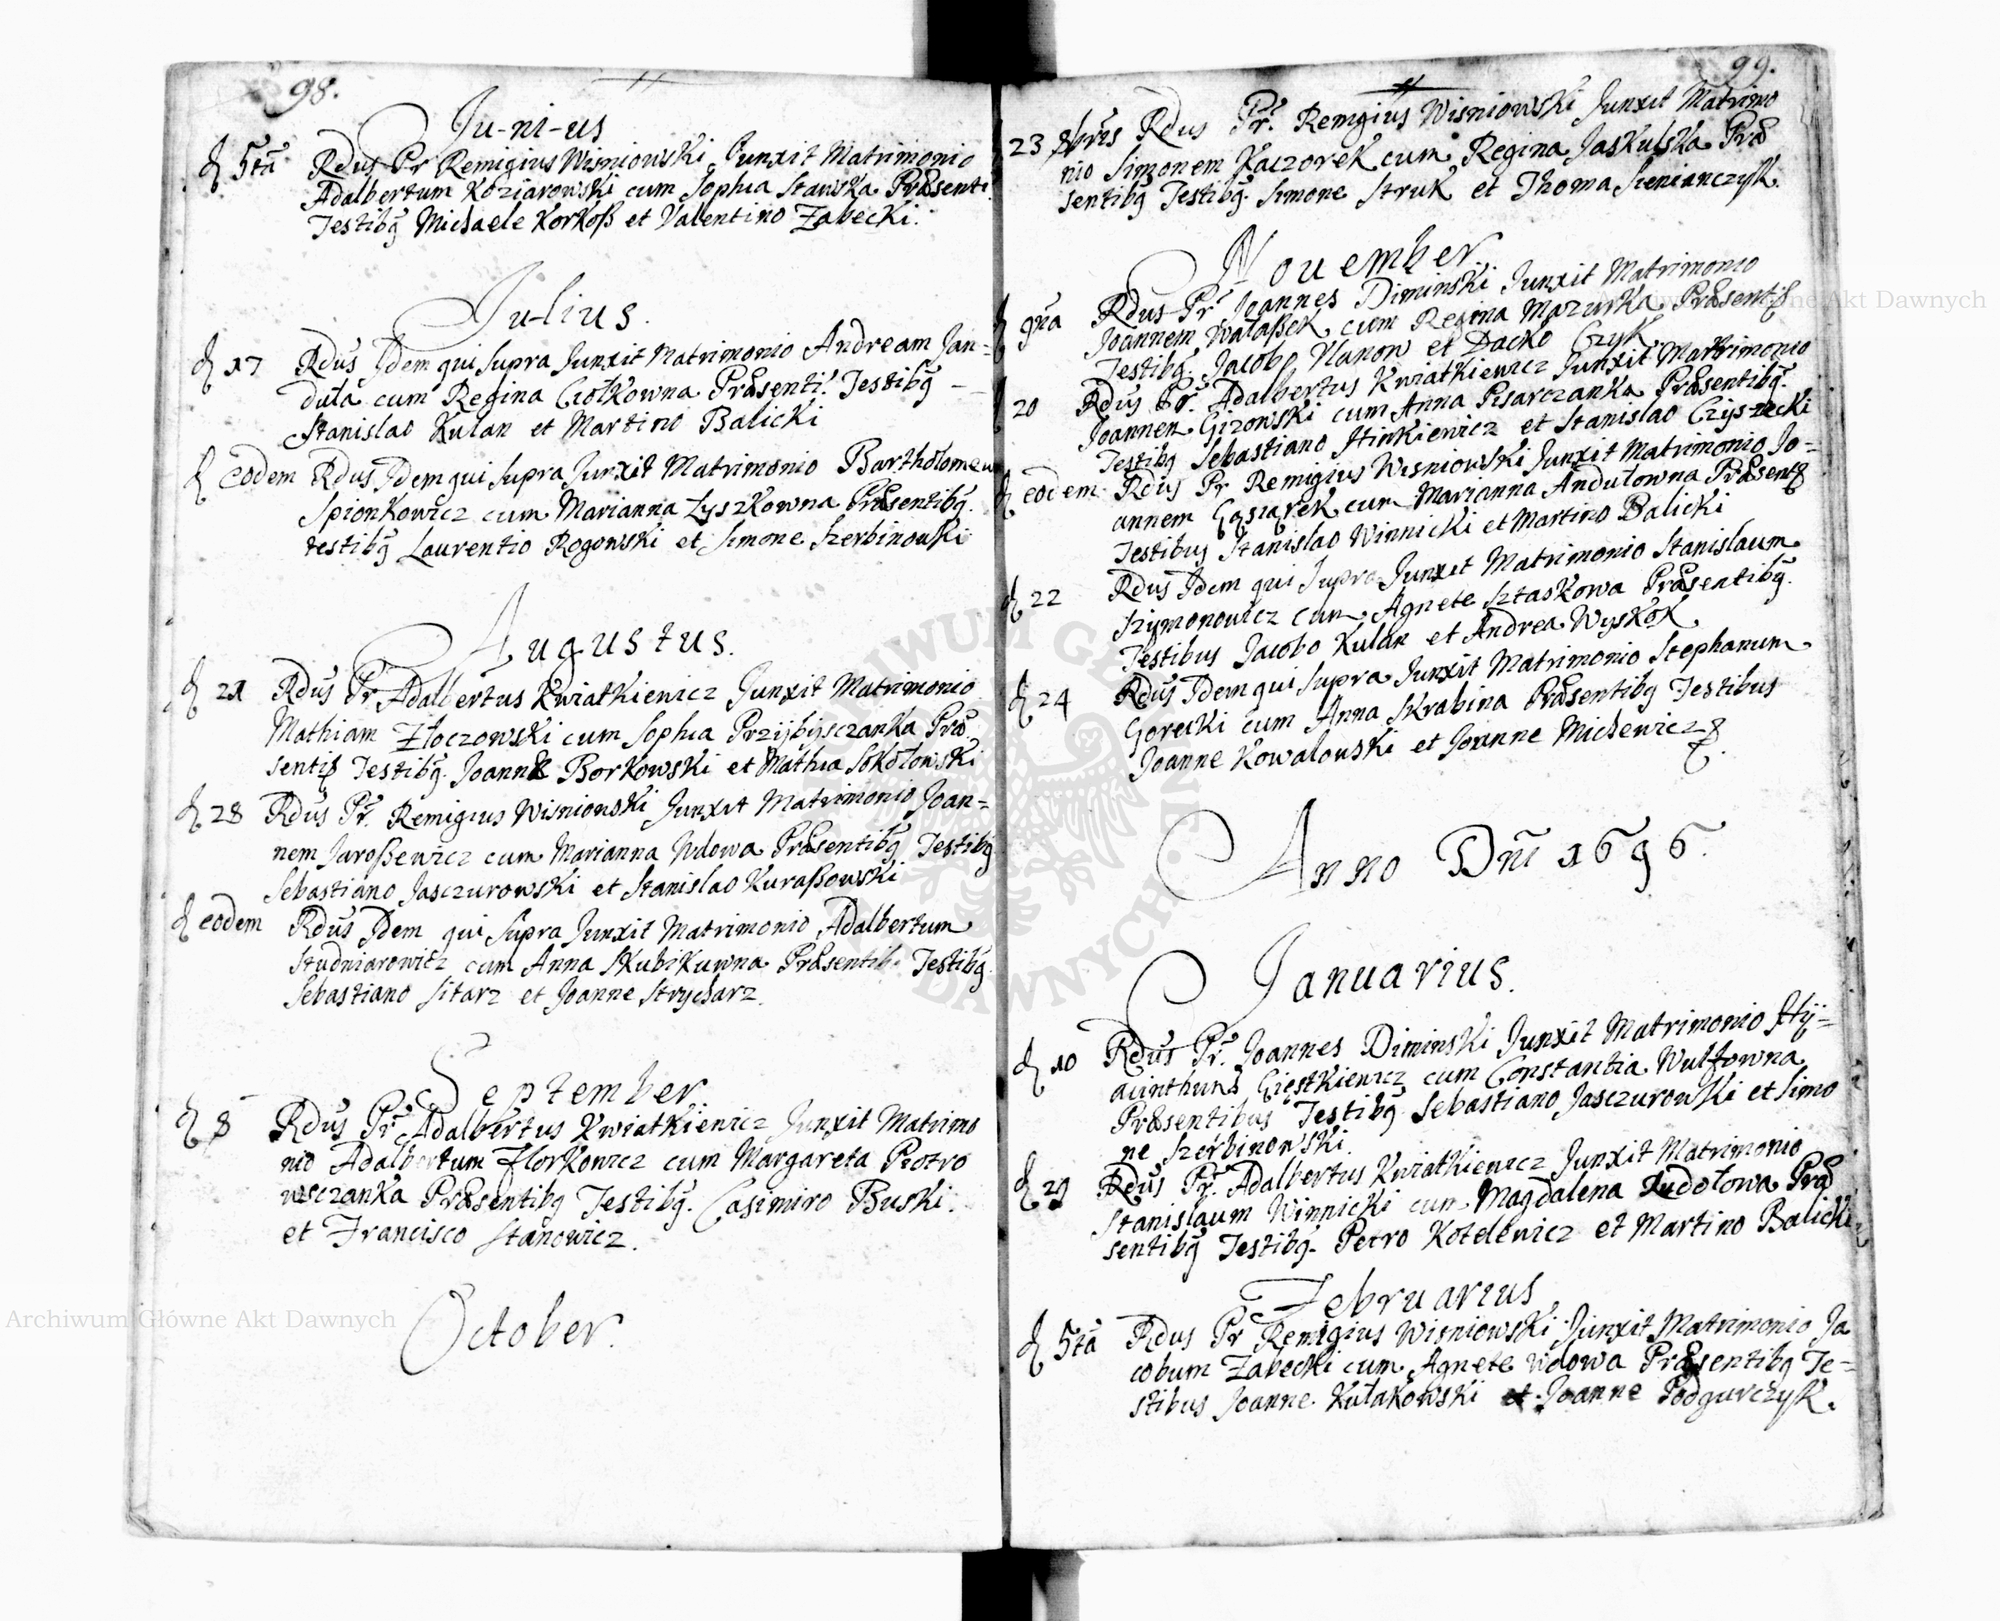 98.
Ju-ni-us
d 5ta Rdus Pr Remigius Wisniowski Junxit Matrimonio
Adalbertum Koziarowski cum Sophia Stawska Præsenti
Testibq Michaele Korkoß et Valentino Zabecki.
Julius.
d 17 Rdus Idem qui supra Junxit Matrimonio Andream Jan=
dula cum Regina Ciołkowna Præsenti! Testibq —
Stanislao Kulan et Martino Balicki
d eodem Rdus Idem qui supra Junxit Matrimonio Bartholomeum
Spionkowicz cum Marianna Łyszkowna Præsentibq.
testibq Laurentio Rogowski et Simone Szerbinouski
Augustus.
d 21 Rdus Pr Adalbertus Kwiatkiewicz Junxit Matrimonio
Mathiam Złoczowski cum Sophia Przijbijsczanka Præ
sentib Testibq. Joanne Borkowski et Mathia Sokołowski
d 28 Rdus Pr. Remigius Wisniowski Junxit Matrimonio Joan=
nem Jaroßewicz cum Marianna Wdowa Præsentibq Testibq
Sebastiano Jasczurowski et Stanislao Kuraßowski
d eodem Rdus Idem qui Supra Junxit Matrimonio Adalbertum
Studniarowicz cum Anna Skubikuwna Præsentib. Testibq.
Sebastiano Sitarz et Joanne Strycharz.
September
d 8 Rdus Pr Adalbertus Kwiatkiewicz Junxit Matrimo
nio Adalbertum Florkowicz cum Margareta Piotro
wsczanka Præsentibq Testibq. Casimiro Buski.
et Francisco Stanowicz.
October.
99.
23 8bris Rdus Pr. Remigius Wisniowski Junxit Matrimo
nio Simonem Kaczorek cum Regina Jaskulska Præ
sentibq Testibq. Simone Struk et Thoma Sienianczyk.
Nouember.
d 9na Rdus Pr Joannes Diminski Junxit Matrimonio
Joannem Walaßek cum Regina Mazurka Præsentib
Testibq. Jacobo Vlanow et Dacko Czyk
d 20 Rdus Pr. Adalbertus Kwiatkiewicz Junxit Matrimonio
Joannem Gizowski cum Anna Pisarczanka Præsentibq.
Testibq Sebastiano Stinkiewicz et Stanislao Czyszecki
d eodem Rdus Pr Remigius Wisniowski Junxit Matrimonio Jo=
annem Gąsiąrek cum Marianna Andulowna Præsentib
Testibus Stanislao Winnicki et Martino Balicki
d 22 Rdus Idem qui Supra Junxit Matrimonio Stanislaum
Szymonowicz cum Agnete Sztaskowa Præsentibq.
Testibus Jacobo Kulan et Andrea Wyskok
d 24 Rdus Idem qui Supra Junxit Matrimonio Stephanum
Gorecki cum Anna Skrabina Præsentibq Testibus
Joanne Kowalouski et Joanne Michewicz
Anno Dni 1696.
Januarius.
d 10 Rdus Pr. Joannes Diminski Junxit Matrimonio Hij=
acinthum Giestkiewicz cum Constantia Wulfowna
Præsentibus Testibq Sebastiano Jasczurowski et Simo
ne Szerbinowski.
d 29 Rdus Pr. Adalbertus Kwiatkiewicz Junxit Matrimonio
Stanislaum Winnicki cum Magdalena Kudolowa Præ
sentibq Testibq. Petro Kotelewicz et Martino Balicki
Februarius
d 5ta Rdus Pr Remigius Wisniowski Junxit Matrimonio Ja
cobum Zabecki cum Agnete Wdowa Præsentibq Te=
stibus Joanne Kułakowski et Joanne Podgurczyk.
Archiwum Główne Akt Dawnych
Archiwum Główne Akt Dawnych
ARCHIWUM GŁÓWNE AKT DAWNYCH